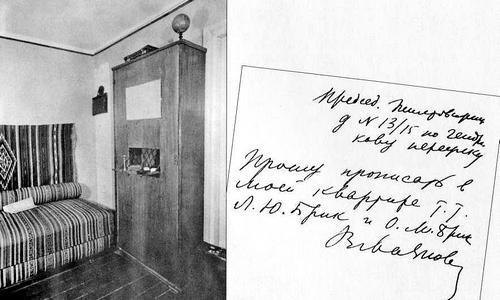 Председ. Жилтоварищ
д N 13/15 по Гендри
кову переулку
Прошу прописать в
моей квартире Т.Т.
Л. Ю. Брик и О. М. Брик